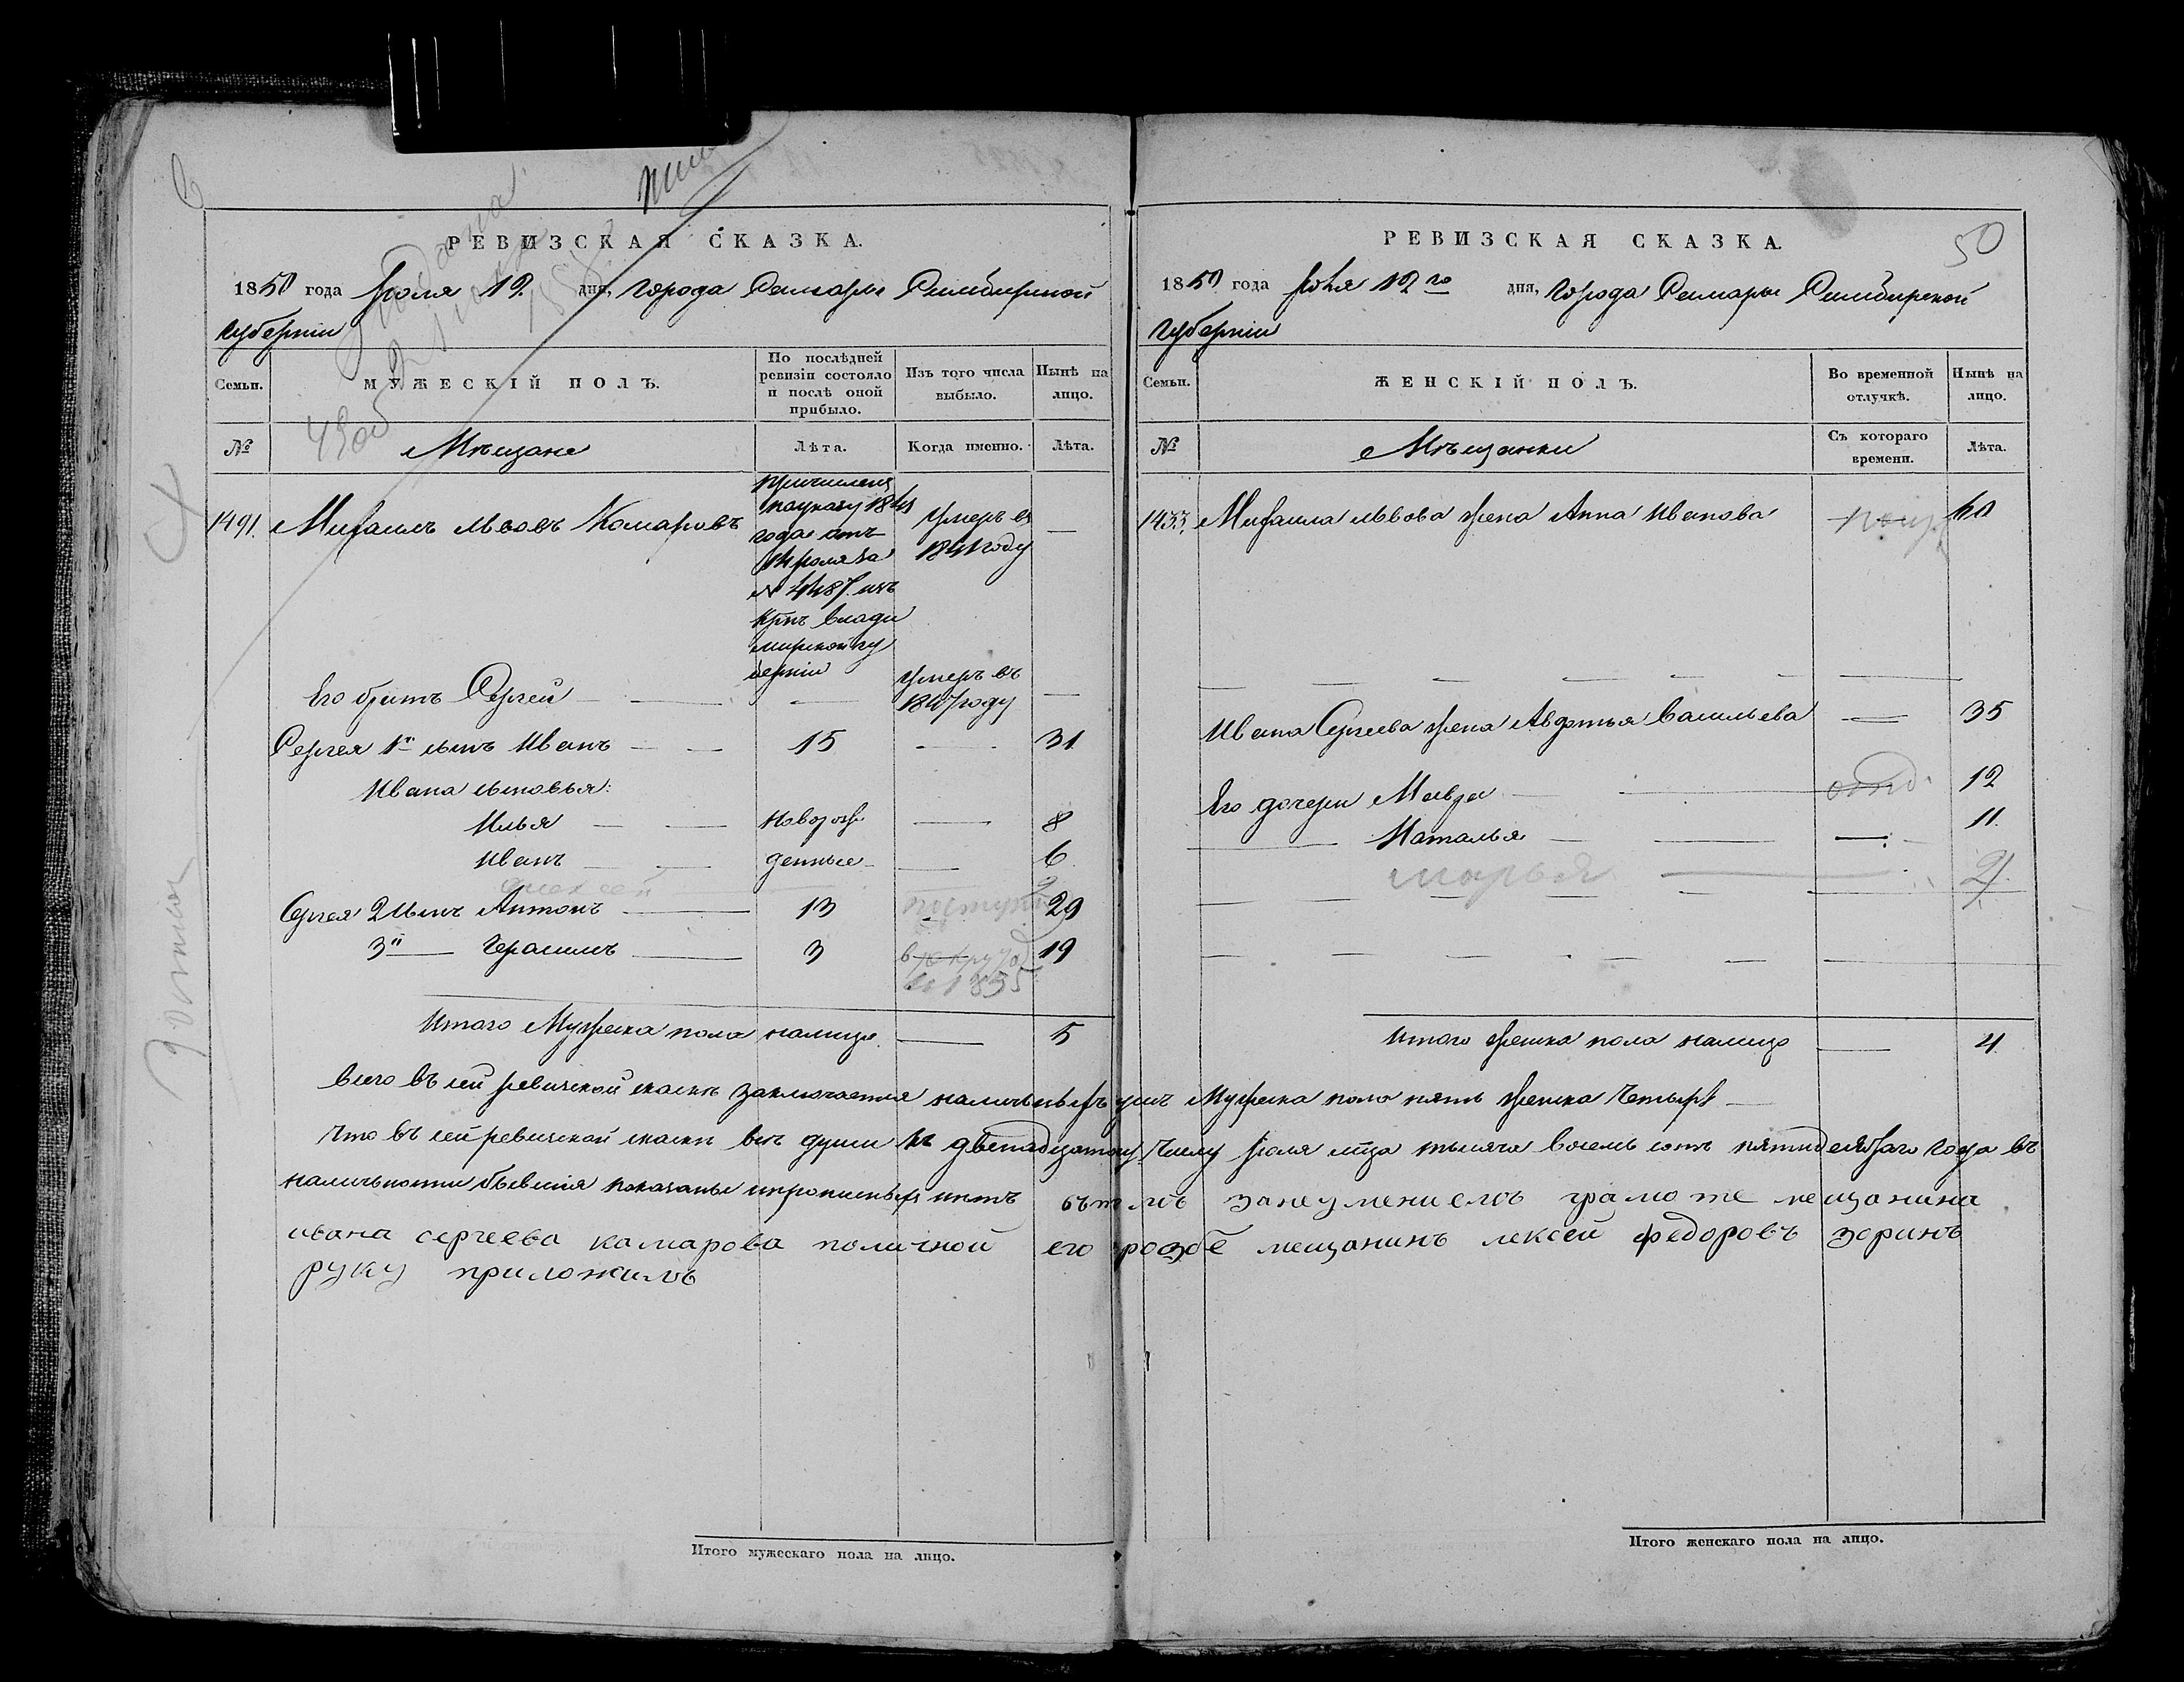 РЕВИЗСКАЯ СКАЗКА.
1850 года Июля 12 дня, Города Самары Симбирской
Губернии
Семьи. МУЖЕСКІЙ ПОЛЪ. По послѣдней ревизіи состояло и послѣ оной прибыло. Изъ того числа выбыло. Нынѣ на лицо.
№ Мѣщане Лѣта. Когда именно. Лѣта.
1491. Михаилъ Львовъ Комаровъ
Причислены
по указу
года отъ
Июля за
№ 4487 изъ
Влади
мирской гу
берніи
Умеръ въ
1841 году
—
Его братъ Сергей — — — Умеръ въ
1847 году —
Сергея 1й сынъ Иванъ — — 15 — 31
Ивана сыновья:
Илья — — Новорож — 8
Иванъ — — денные — 6
алексей 2
Сергея 2 сынъ Антонъ — 13 29
3й — Герасимъ — 3 19
в рекруты
в 1855
Итого Мужеска пола налицо — 5
РЕВИЗСКАЯ СКАЗКА.
50
1850 года Июля 12го дня, Города Самары Симбирской
Губерніи
Семьи. ЖЕНСКІЙ ПОЛЪ. Во временной отлучкѣ. Нынѣ на лицо.
№ Мѣщанки Съ котораго времени. Лѣта.
1433. Михаила Львова жена Анна Иванова 60
Ивана Сергеева жена Авдотья Васильева — 35
Его дочери Мавра — 12
— Наталья — — — 11
марья — 2
Итого женска пола налицо — 4
Всего въ сей ревизской сказкѣ заключается наличныхъ душъ Мужеска пола пять женска Четыре —
Что въ сей ревизской сказкѣ всѣ души къ двенадцатому числу Июля мца тысяча восемь сотъ пятидесятаго года въ
наличности бывшія показаны и прописныхъ нѣтъ въ томъ занеумениемъ грамоте мещанина
ивана сергеева камарова поличной его прозбе мещанинъ лексей федоровъ зоринъ
руку приложилъ
Итого мужескаго пола на лицо.
Итого женскаго пола на лицо.